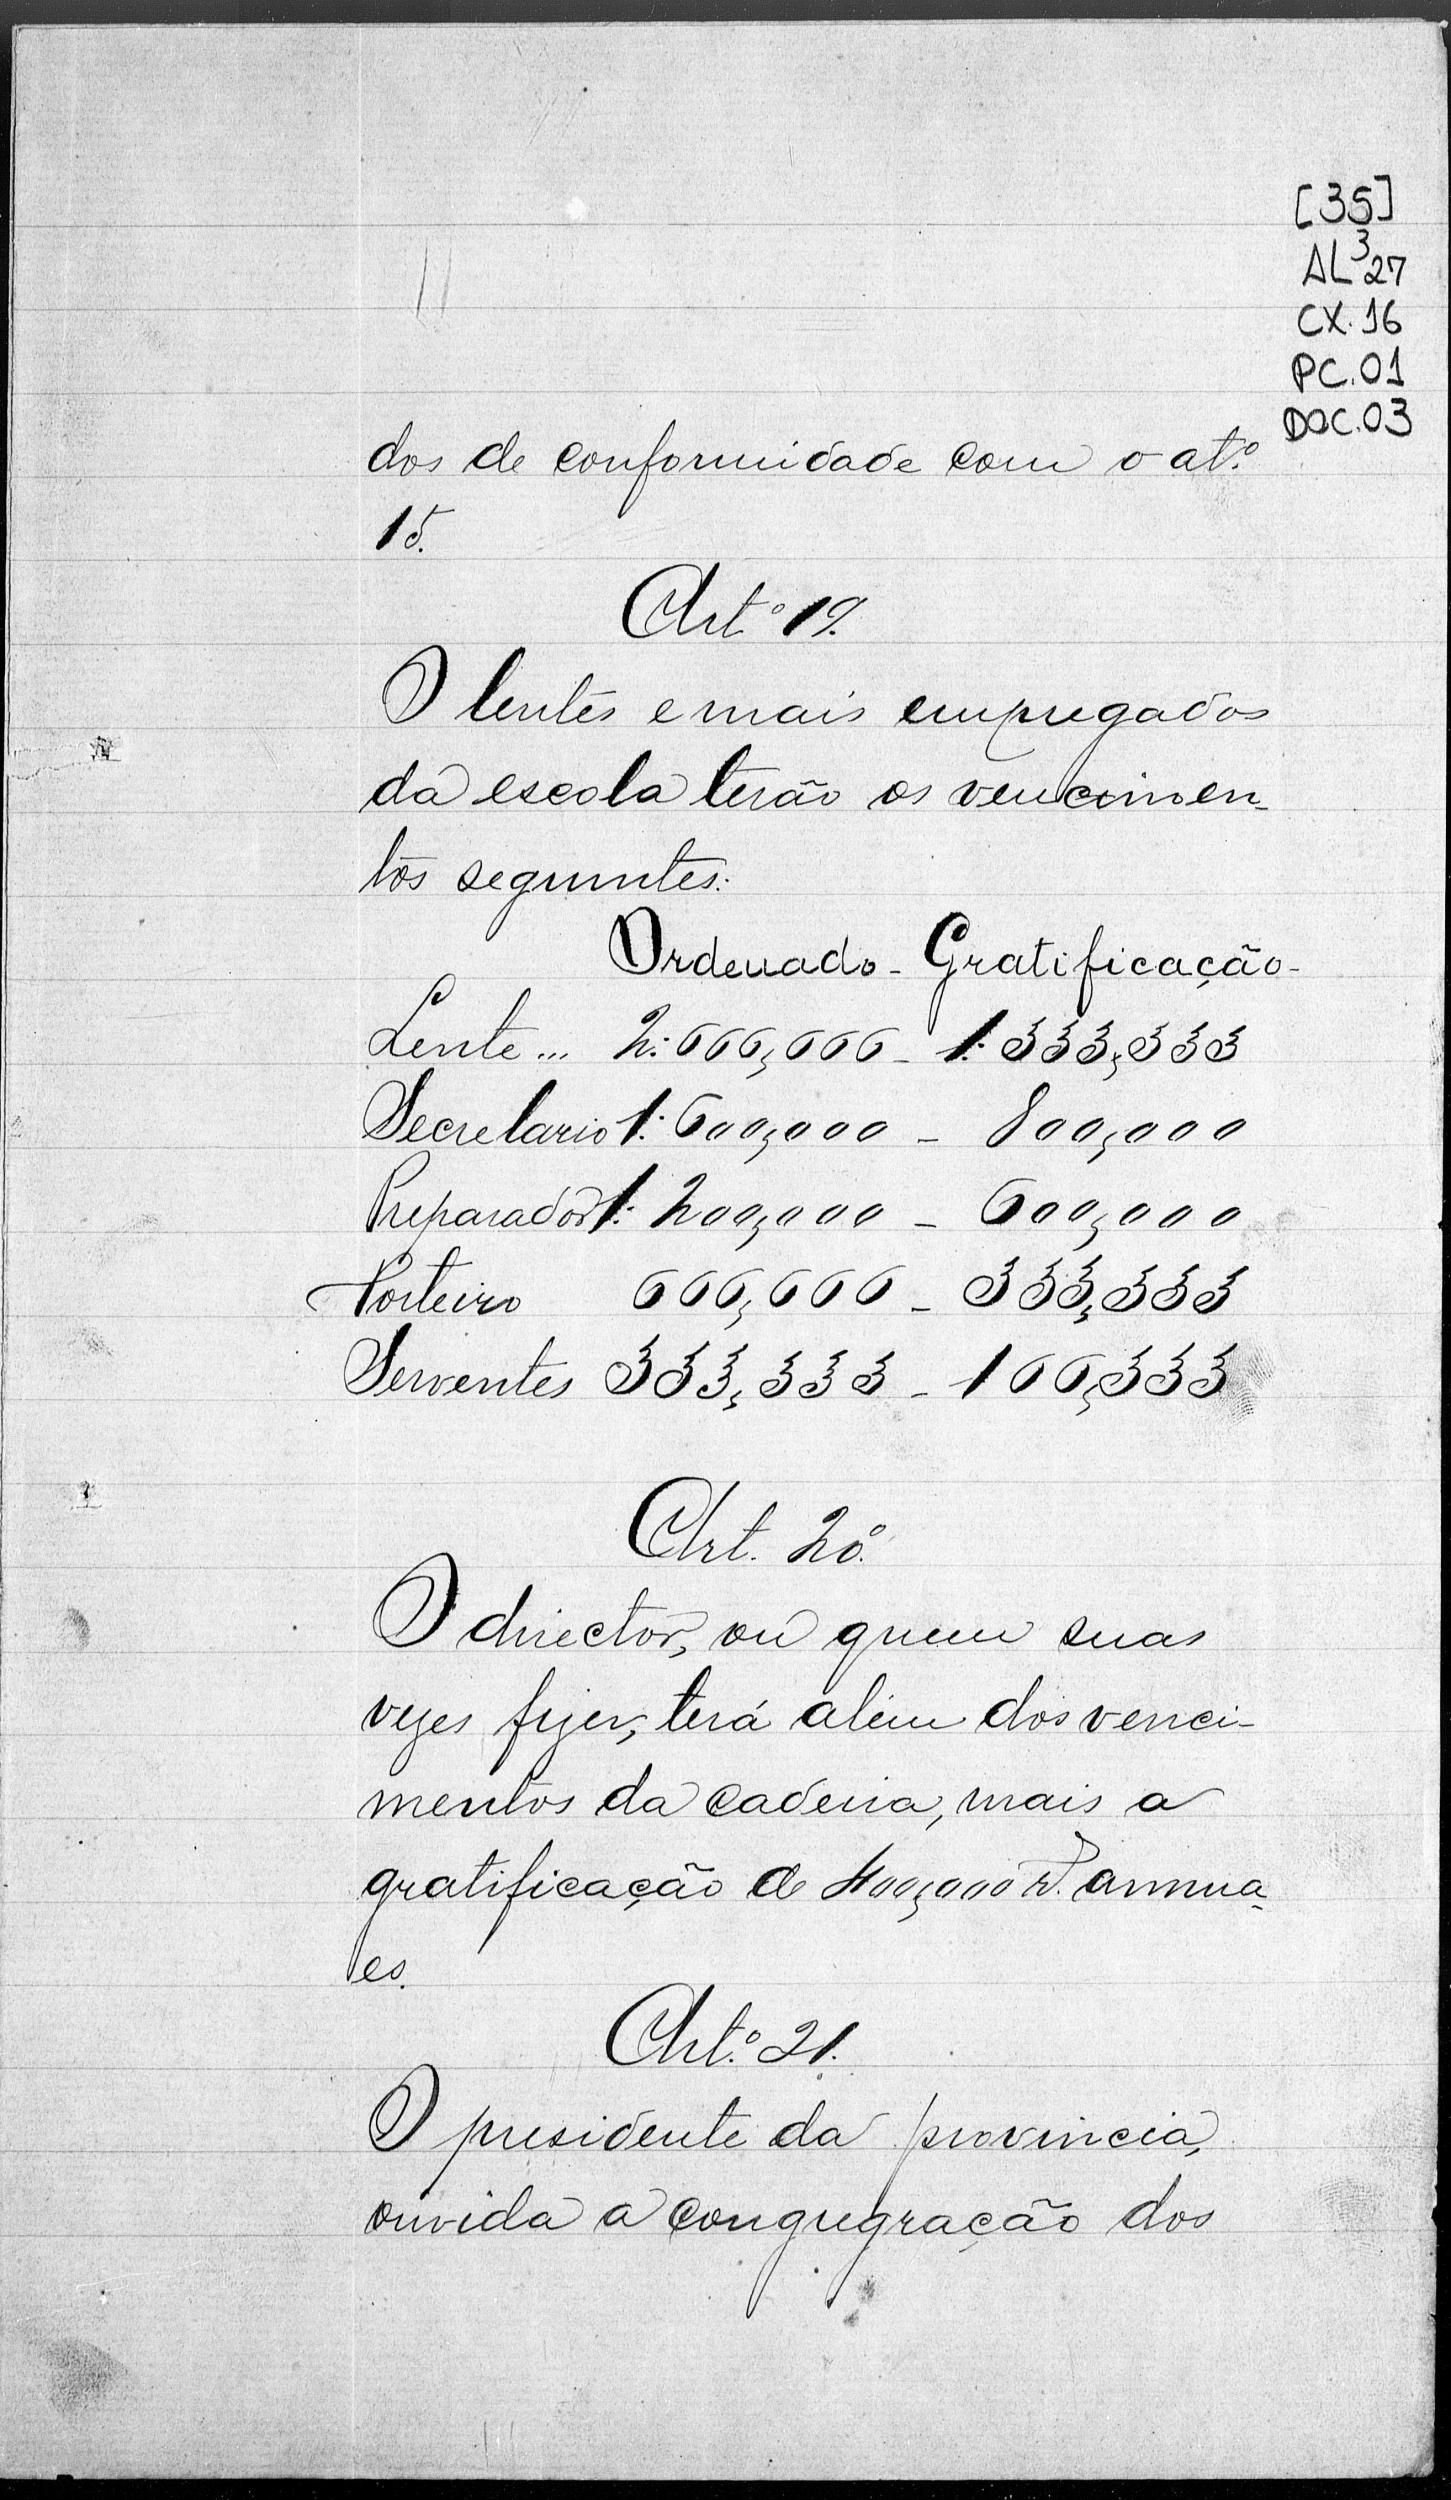 [35]
AL³27
CX.16
PC.01
DOC.03
dos de conformidade com o at.º
15.
Art.º 19.
O lentes e mais empregados
da escola terão os vencimen-
tos seguintes:
Ordenado - Gratificação -
Lente... 2:666,666 - 1:333,333
Secretario 1:600,000 - 800,000
Preparador 1:200,000 - 600,000
Porteiro 666,666 - 333,333
Serventes 333,333 - 166,333
Art. 20º.
O director, ou quem suas
vezes fizer, terá alem dos venci-
mentos da cadeira, mais a
gratificação de 400,000 rs. annua-
es.
Art.º 21.
O presidente da provincia,
ouvida a congregração dos